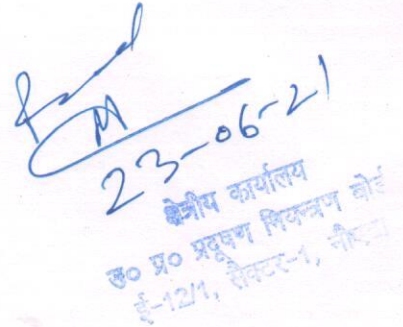 23-06-21
क्षेत्रीय कार्यालय
उ० प्र० प्रदूषण नियन्त्रण बोर्ड
ई-12/1, सैक्टर-1,